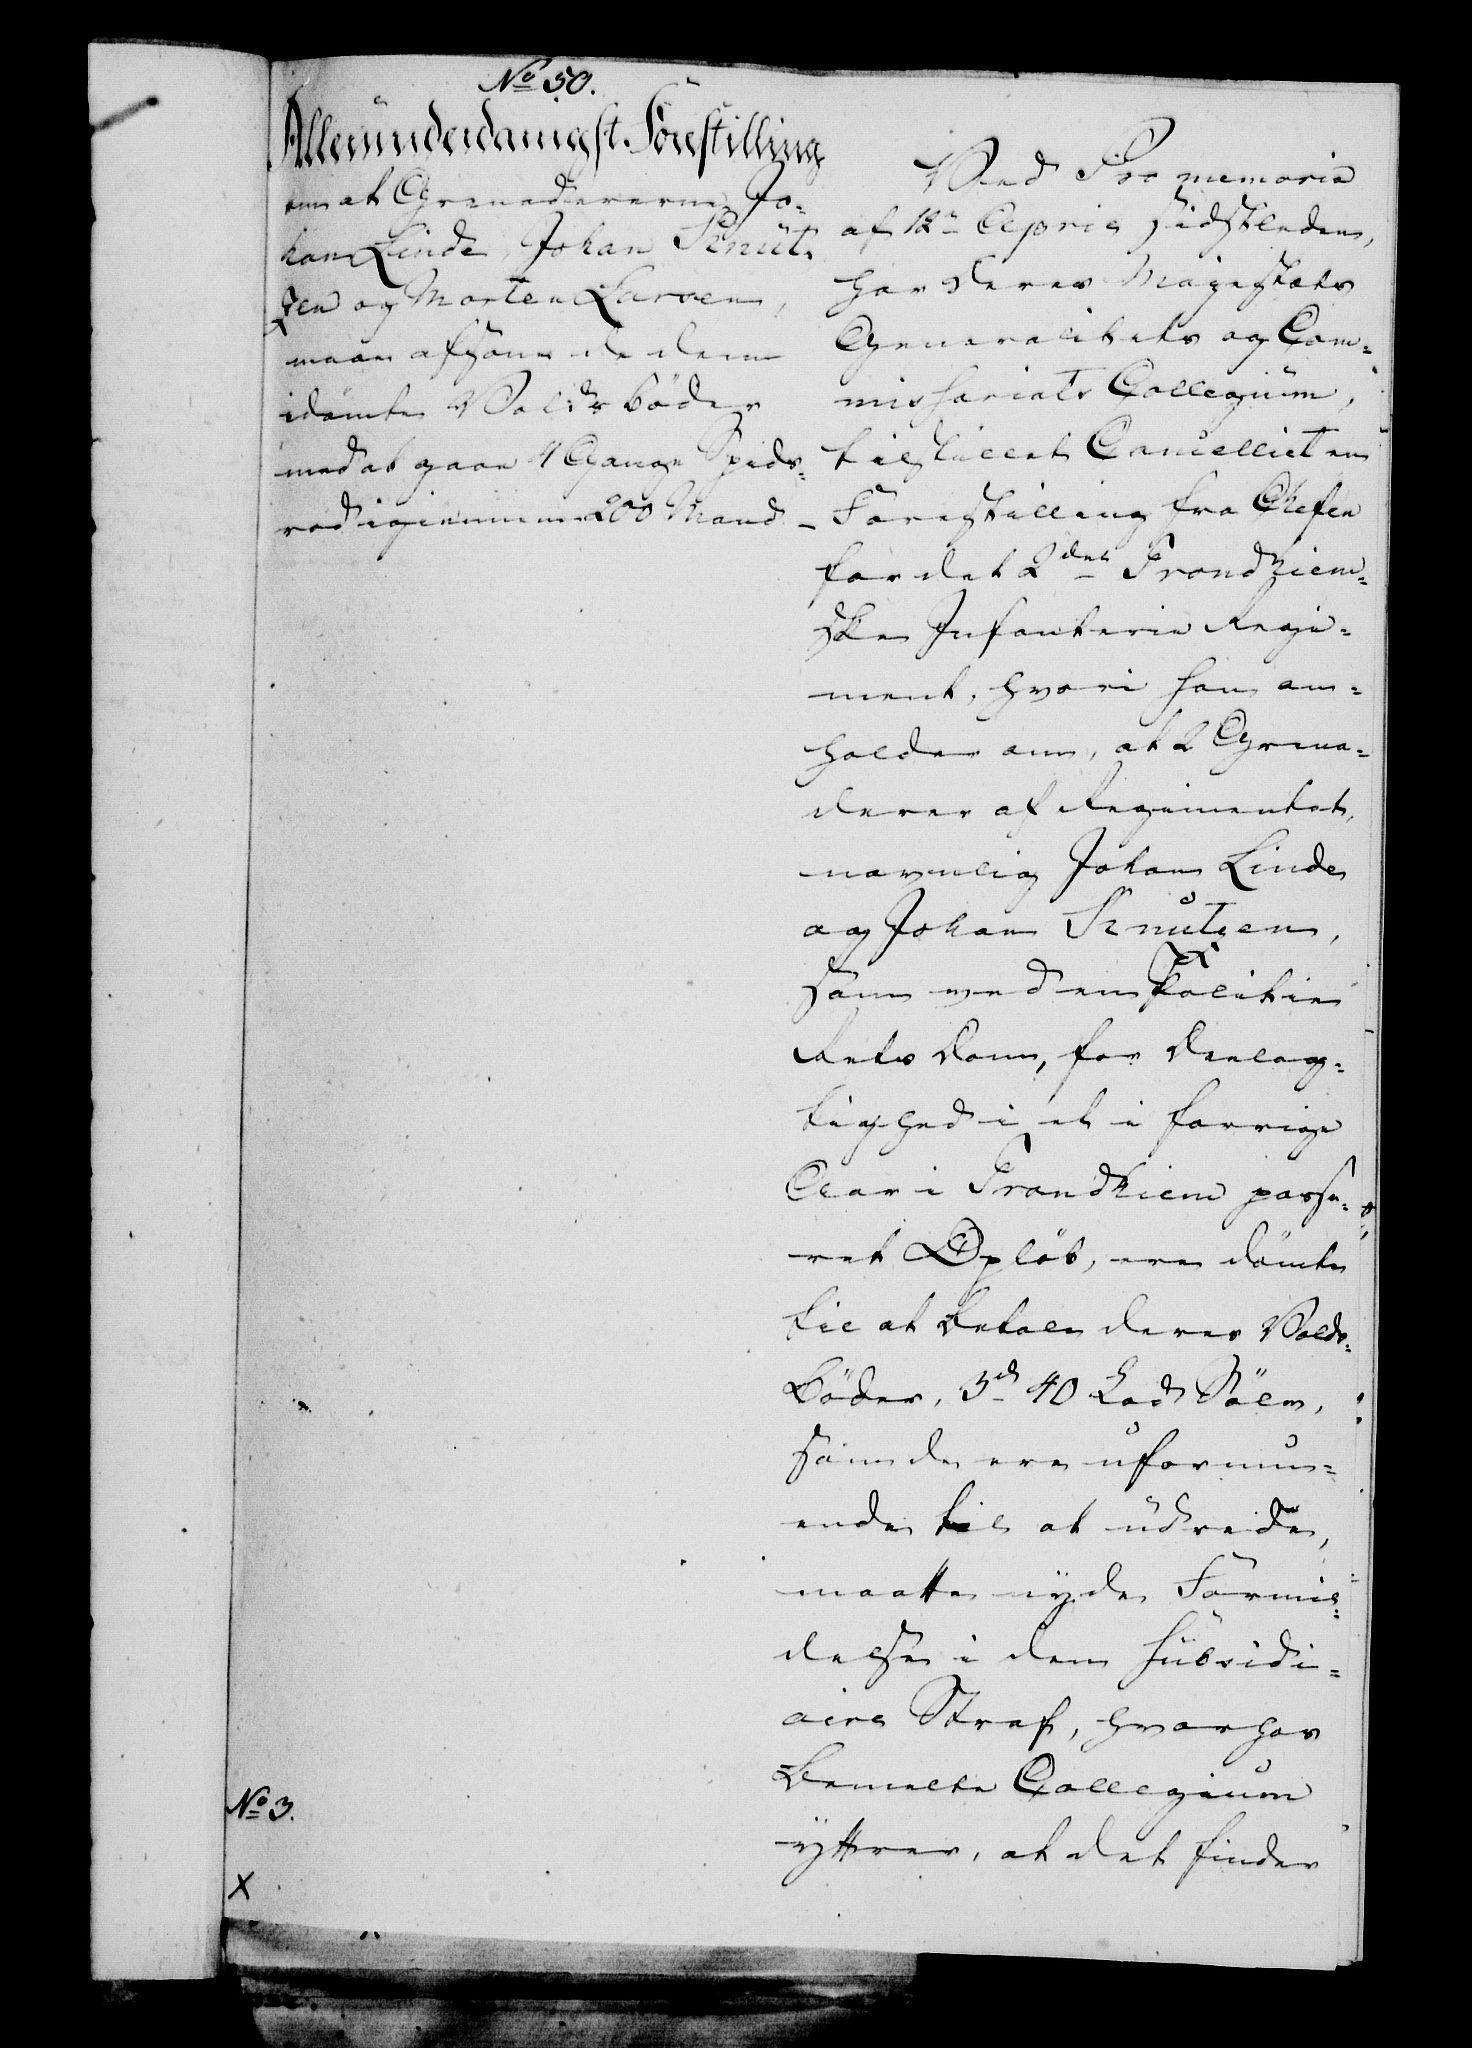 No 50.
Alleründerdanigst Forestilling
om at Grenadererne Jo-
han Linde, Johan Knüt-
zen og Morten Larsen,
maae afsone de dem
idömte Volds böder
med at gaae 4 Gange Spids-
rod igiennem 200 Mand –
Ved Pro memoria
af 12te April sidstleden,
har Deres Majestæts
Generalitets og Com-
missariats Collegium,
tilstillet Cancelliet en
Forestilling fra Chefen
for det 2det Trondhiem-
ske Infanterie Regi-
ment, hvori han an-
holder om, at 2 Grena-
derer af Regimentet,
navnlig Johan Linde
og Johan Knutzen,
som ved en Politie
Rets Dom, for Deelag-
tighed i et i forrige
Aar i Trondhiem passe-
ret Opløb, ere dömte
til at betale deres Volds-
Böder, 3de 40 Lod Sölv,
som de ere uformu-
ende til at üdrede,
maatte nyde Formil-
delse i den subsidi-
aire Straf, hvorhos
bemelte Collegium
yttrer, at det finder
No 3.
X